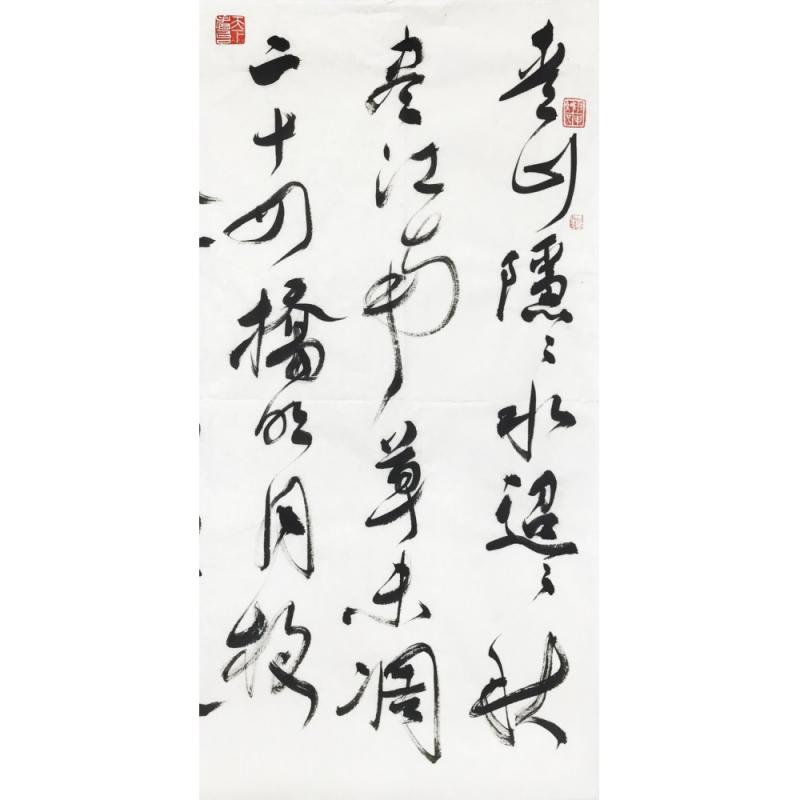 青山隱〻水迢〻秋
盡江南草未凋
二十四橋明月夜